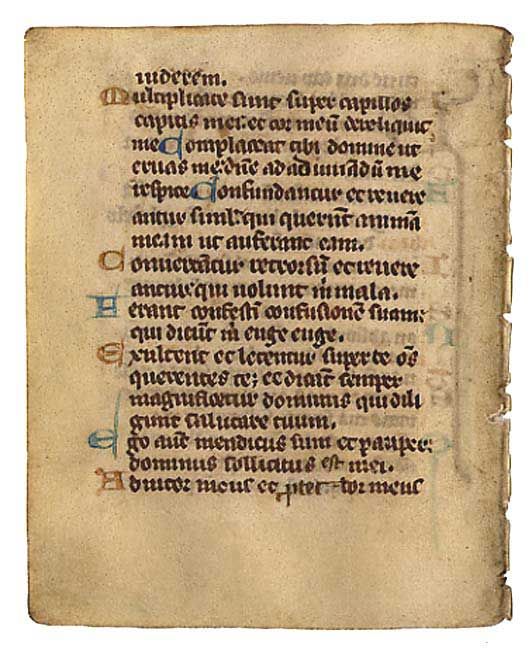 uiderem.
Multiplicate sunt super capillos
capitis mei: et cor meū dereliquit
me Complaceat tibi domine ut
eruas me: dn̄e ad adiuuādū me
respice Confundantur et reuere
antur simł: qui querūt animā
meam ut auferant eam.
Conuertātur retrorsū et reuere
antur qui uolunt m̄ mala.
Ferant confestī confusionem suam:
qui dicūt m̄ euge euge.
Exultent et letentur super te ōs
querentes te; et dicāt semper
magnificetur dominus qui dili
gunt salutare tuum.
Ego autē mendicus sum et pauper:
dominus sollicitus est mei.
Adiutor meus et ptector meus